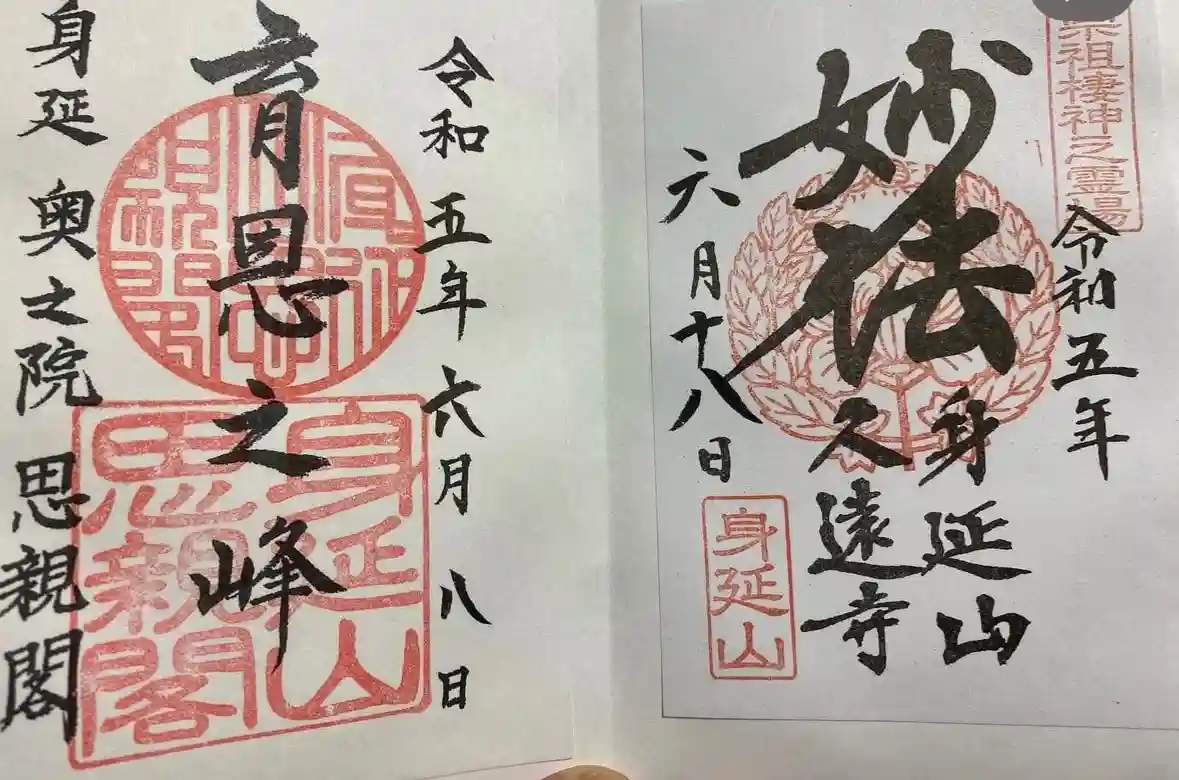 宗祖棲神之霊場
令和五年
妙法
身延山
久遠寺
六月十八日
身延山
令和五年六月八日
育恩之峰
身延山
思親閣
身延 奥之院 思親閣